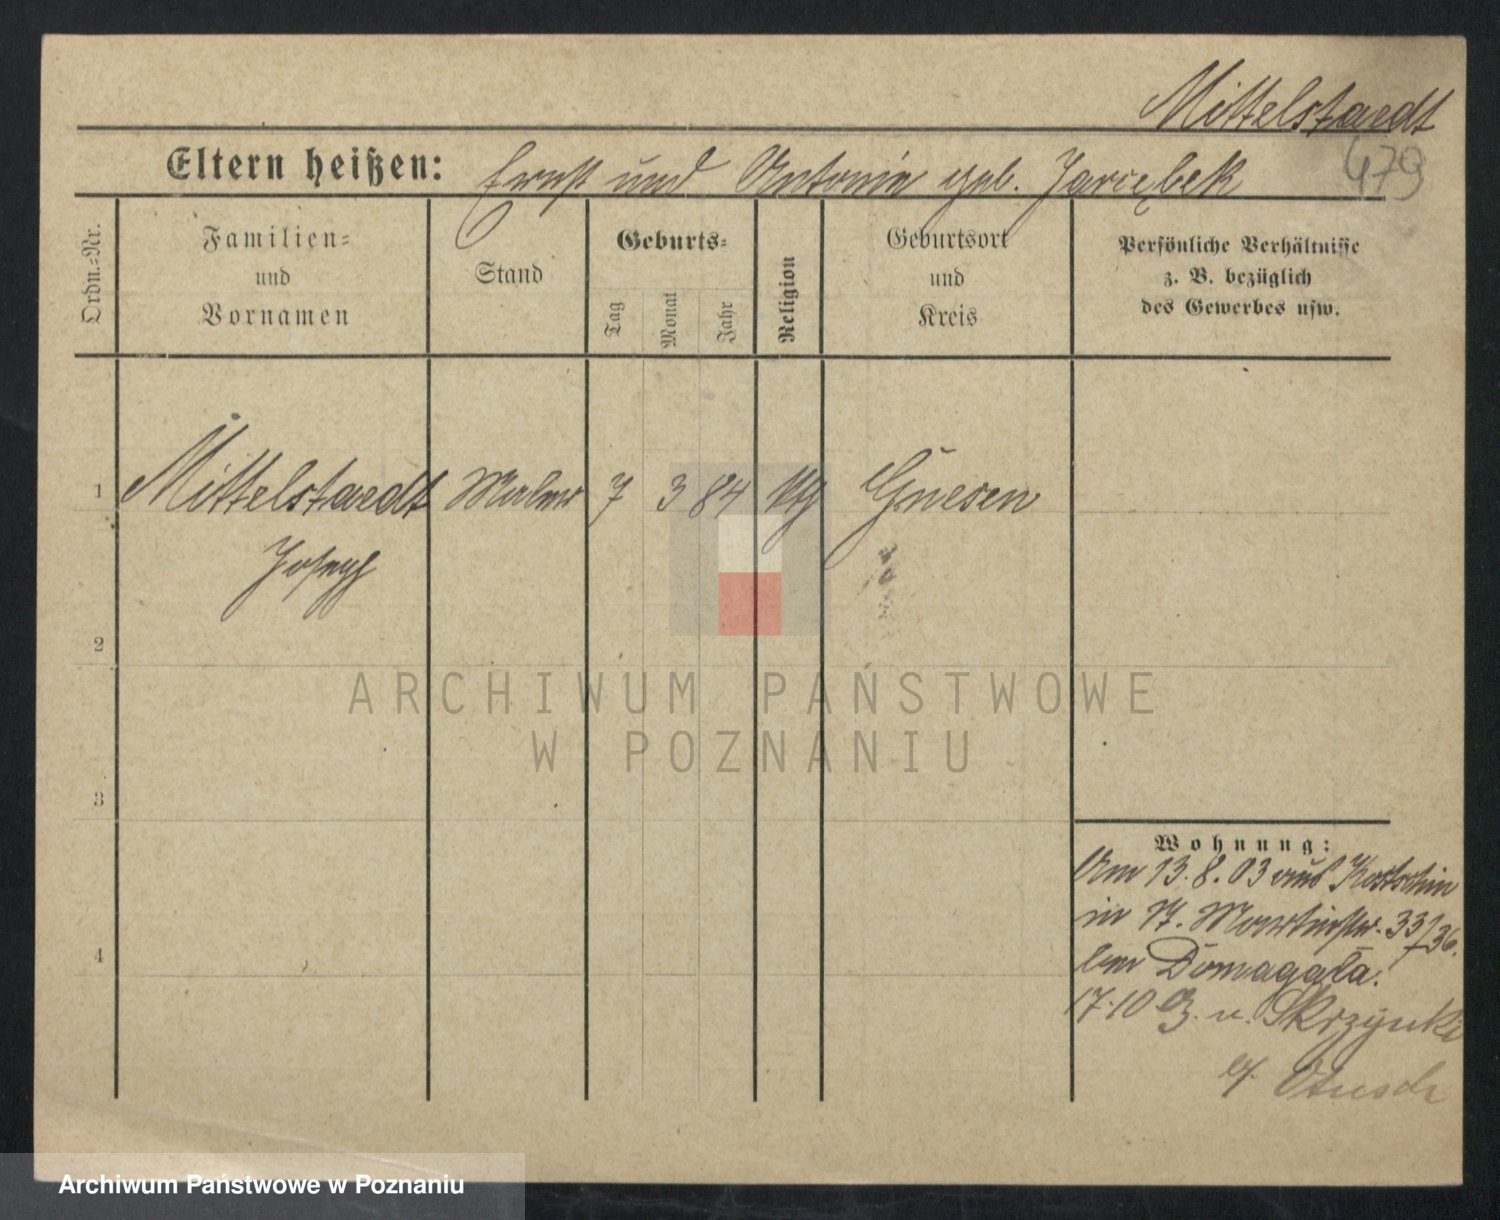 Mittelstaedt
Eltern heißen: Ernst und Antonie geb. Jarcębek
479
Ordn.-Nr.
Familien-
und
Vornamen
Stand
Geburts-
Tag
Monat
Jahr
Religion
Geburtsort
und
Kreis
Persönliche Verhältnisse
z. B. bezüglich
des Gewerbes usw.
1 Mittelstaedt Maler 7 3 84 kth Gnesen
Joseph
2
3
4
Wohnung:
Am 13.8.03 aus Kostschin
in St. Martinstr. 33/36.
bei Domagała.
17.10 Z. n. Skrzynki
ARCHIWUM PAŃSTWOWE
W POZNANIU
Archiwum Państwowe w Poznaniu